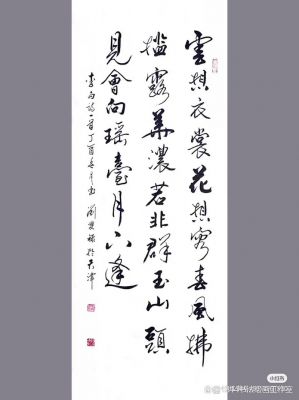 雲想衣裳花想容春風拂
檻露華濃若非群玉山頭
見會向瑶臺月下逢
李白詩一首丁酉 劉 於天津
小红书